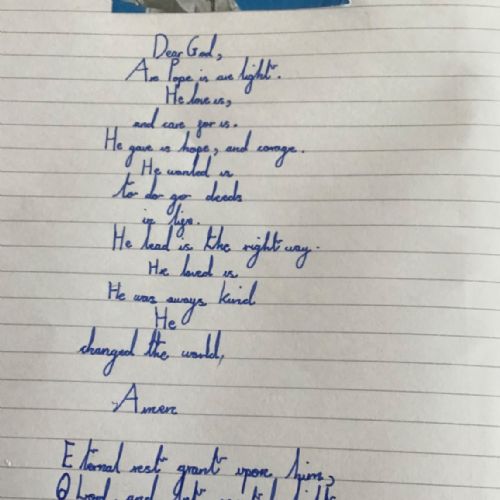 Dear God,
Are Pope is are light.
He love us,
and care for us.
He gave us hope, and corage.
He wanted us
to do go deeds
in life.
He lead is the right way.
He loved us
He was aways kind
He
changed the world,
Amen
Eternal rest grant upon him,
O Lord, and let